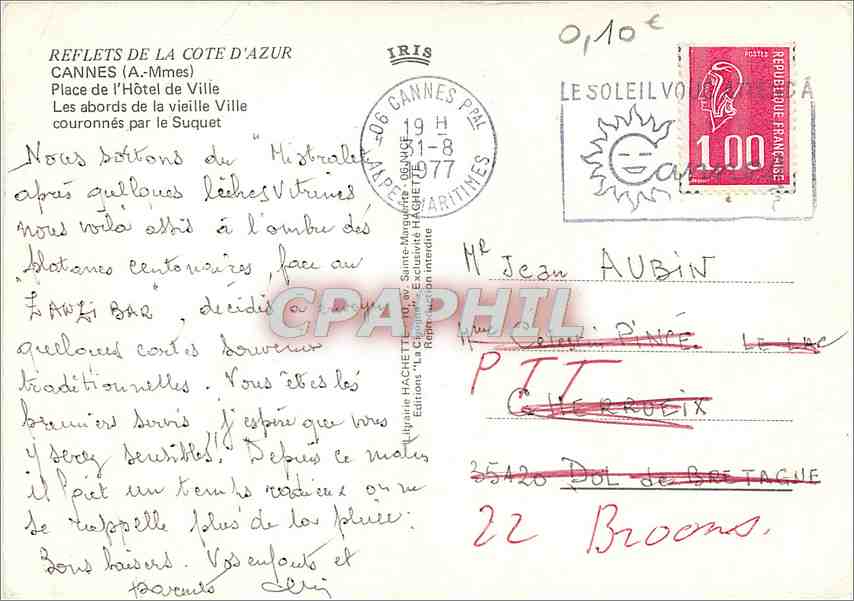 0,10€
REFLETS DE LA COTE D'AZUR
IRIS
CANNES (A.-Mmes)
Place de l'Hôtel de Ville
Les abords de la vieille Ville
couronnés par le Suquet
06 CANNES PPAL
19 H
31-8
1977
ALPES MARITIMES
LE SOLEIL VOUS
POSTES
REPUBLIQUE FRANÇAISE
1.00
Nous sortons du "Mistral
après quelques lèches vitrines
nous voilà assis à l'ombre des
platanes centenaires, face au
"ZANZI BAR", décidés à envoyer
quelques cartes souvenirs
traditionnelles. Vous êtes les
premiers servis j'espère que vous
y serez sensibles! Depuis ce matin
il fait un temps radieux on ne
se rappelle plus de la pluie.
Bons baisers. Vos enfants et
parents
Librairie HACHETTE, 10, av. Sainte-Marguerite - 06 NICE
Editions "La Cigogne" - Exclusivité HACHETTE
Reproduction interdite
CPAPHIL
Mr Jean AUBIN
LE LAC
PTT
CHERRUEIX
35120 DOL de BRETAGNE
22 Broons.